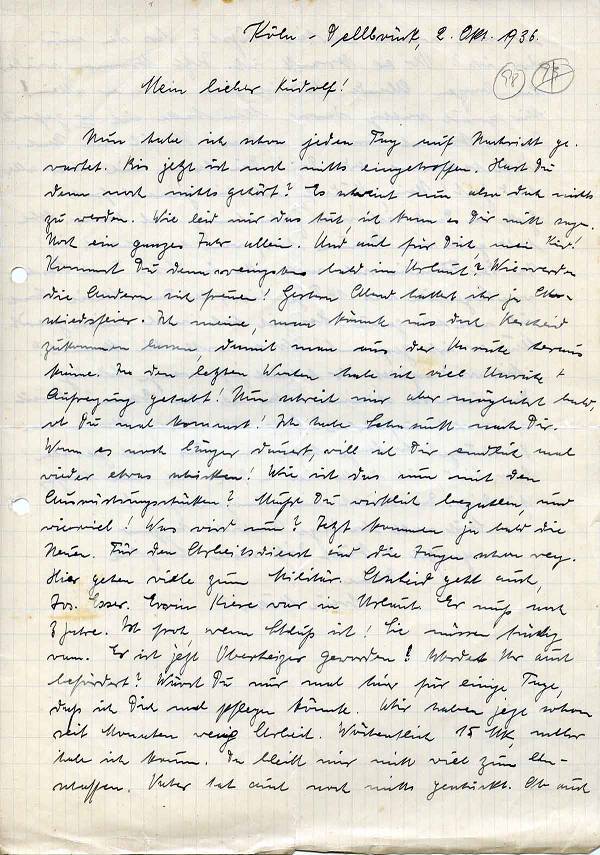 Köln - Dellbrück, 2. Okt. 1936.
98 93
Mein lieber Rudolf!
Nun habe ich schon jeden Tag auf Nachricht ge-
wartet. Bis jetzt ist noch nichts eingetroffen. Hast Du
denn noch nichts gehört? Es scheint nun also doch nichts
zu werden. Wie leid mir das tut, ich kann es Dir nicht sagen.
Noch ein ganzes Jahr allein. Und auch für Dich, mein Kind!
Kommst Du denn wenigstens bald in Urlaub? Wie werden
die Andern sich freuen! Gestern Abend hattet ihr ja Ab-
schiedsfeier. Ich meine, man könnte uns doch Bescheid
zukommen lassen, damit man aus der Unruhe heraus
käme. In den letzten Wochen habe ich viel Unruhe +
Aufregung gehabt! Nun schreib mir aber möglichst bald,
ob Du mal kommst! Ich habe Sehnsucht nach Dir.
Wenn es noch länger dauert, will ich Dir endlich mal
wieder etwas schicken! Wie ist das nun mit den
Ausrüstungsstücken? Mußt Du wirklich bezahlen, und
wieviel! Was wird nun? Jetzt kommen ja bald die
Neuen. Für den Arbeitsdienst sind die Jungen schon weg.
Hier gehen viele zum Militär. geht auch,
Jos. Esser. Erwin war in Urlaub. Er muß noch
3 Jahre. Ist froh wenn Schluß ist! Sie müssen tüchtig
ran. Er ist jetzt Oberheizer geworden! Werdet Ihr auch
befördert? Wärst Du nur mal hier für einige Tage,
daß ich Dich mal pflegen könnte. Wir haben jetzt schon
seit Monaten wenig Arbeit. Wöchentlich 15 Mk, mehr
habe ich kaum. Da bleibt mir nicht viel zum An-
schaffen. Vater hat auch noch nichts geschickt. Ob auch